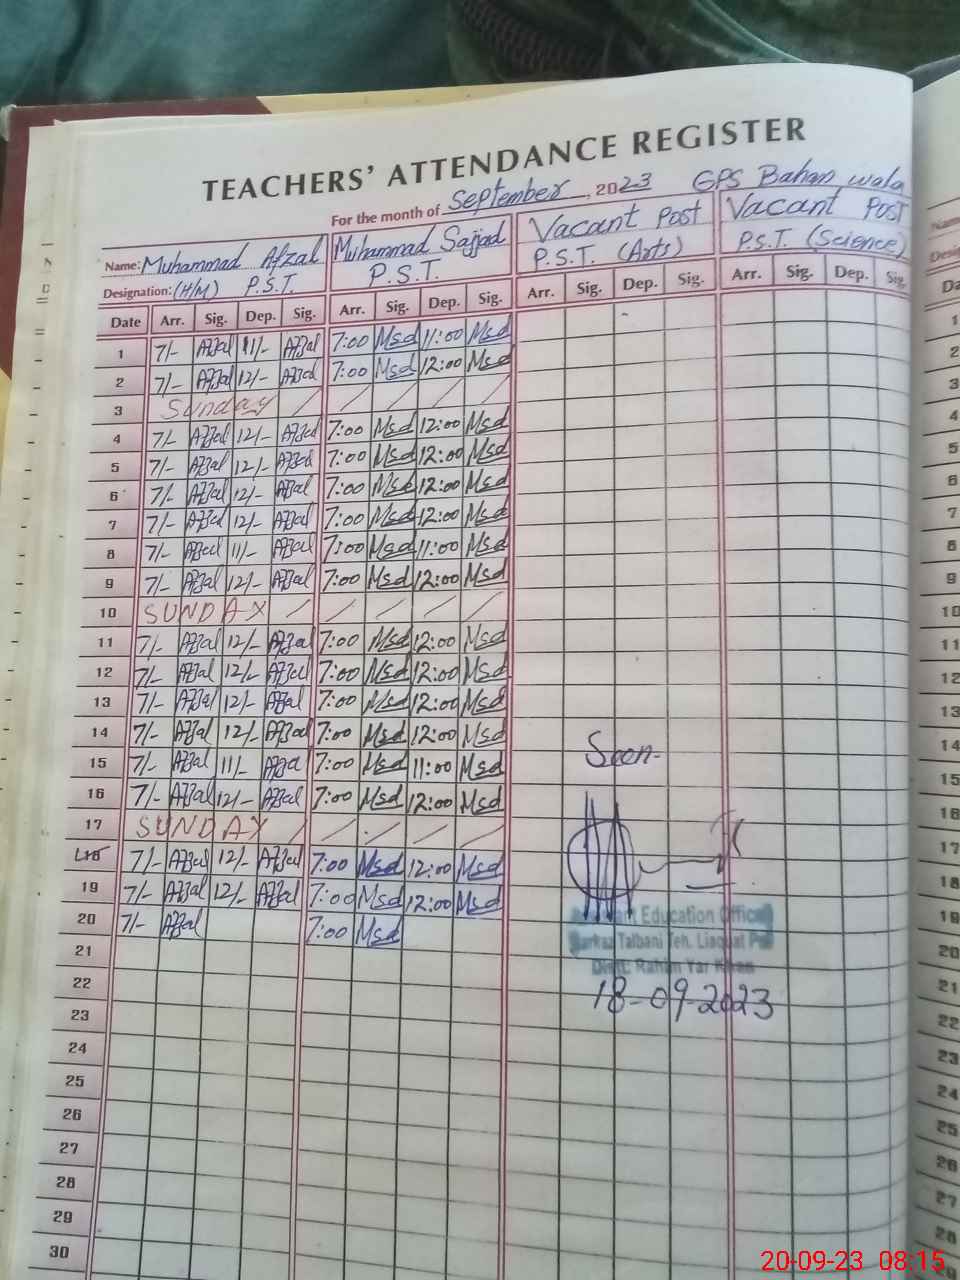 TEACHERS' ATTENDANCE REGISTER
For the month of September, 2023 GPS Bahan wala
Name: Muhammad Afzal Muhammad Sajjad Vacant Post Vacant Post
Designation: (H/M) P.S.T. P.S.T. P.S.T. (Arts) P.S.T. (Science)
Date Arr. Sig. Dep. Sig. Arr. Sig. Dep. Sig. Arr. Sig. Dep. Sig. Arr. Sig. Dep. Sig.
1 7/- Afzal 11/- Afzal 7:00 Msd 11:00 Msd
2 7/- Afzal 12/- Afzal 7:00 Msd 12:00 Msd
3 Sunday / / / / /
4 7/- Afzal 12/- Afzal 7:00 Msd 12:00 Msd
5 7/- Afzal 12/- Afzal 7:00 Msd 12:00 Msd
6 7/- Afzal 12/- Afzal 7:00 Msd 12:00 Msd
7 7/- Afzal 12/- Afzal 7:00 Msd 12:00 Msd
8 7/- Afzal 11/- Afzal 7:00 Msd 11:00 Msd
9 7/- Afzal 12/- Afzal 7:00 Msd 12:00 Msd
10 SUNDAY / / / / /
11 7/- Afzal 12/- Afzal 7:00 Msd 12:00 Msd
12 7/- Afzal 12/- Afzal 7:00 Msd 12:00 Msd
13 7/- Afzal 12/- Afzal 7:00 Msd 12:00 Msd
14 7/- Afzal 12/- Afzal 7:00 Msd 12:00 Msd
15 7/- Afzal 11/- Afzal 7:00 Msd 11:00 Msd
16 7/- Afzal 12/- Afzal 7:00 Msd 12:00 Msd
17 SUNDAY / / / / /
18 7/- Afzal 12/- Afzal 7:00 Msd 12:00 Msd
19 7/- Afzal 12/- Afzal 7:00 Msd 12:00 Msd
20 7/- Afzal 7:00 Msd
21
22
23
24
25
26
27
28
29
30
Seen-
Education Officer
Markaz Talbani Teh. Liaquat Pur
Distt: Rahim Yar Khan
18-09-2023
1
2
3
4
5
6
7
8
9
10
11
12
13
14
15
16
17
18
19
20
21
22
23
24
25
26
27
28
29
20-09-23 08:15